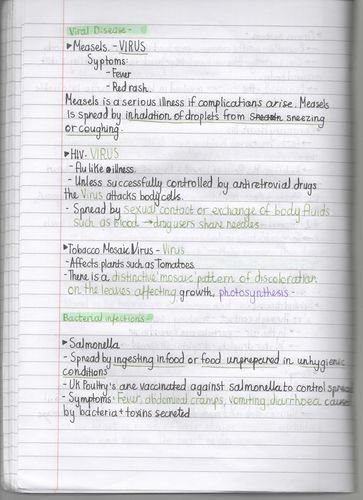 Viral Disease -
▶ Measels. - VIRUS
Syptoms:
- Fever
- Red rash.
Measels is a serious illness if complications arise. Measels
is spread by inhalation of droplets from sneezing
or coughing.
▶ HIV- VIRUS
- flu like illness.
- Unless successfully controlled by antiretrovial drugs
the Virus attacks body cells.
- Spread by sexual contact or exchange of body fluids
such as blood → drug users share needles
▶ Tobacco Mosaic Virus - Virus
- Affects plants such as Tomatoes.
- There is a distinctive 'mosaic' pattern of discoloration
on the leaves affecting growth, photosynthesis -
Bacterial infections -
▶ Salmonella -
- Spread by ingesting in food or food unprepared in unhygienic
conditions
- UK Poultry's are vaccinated against salmonella to control spread
- Symptoms: Fever, abdominal cramps, vomiting, diarrhoea caused
by bacteria + toxins secreted